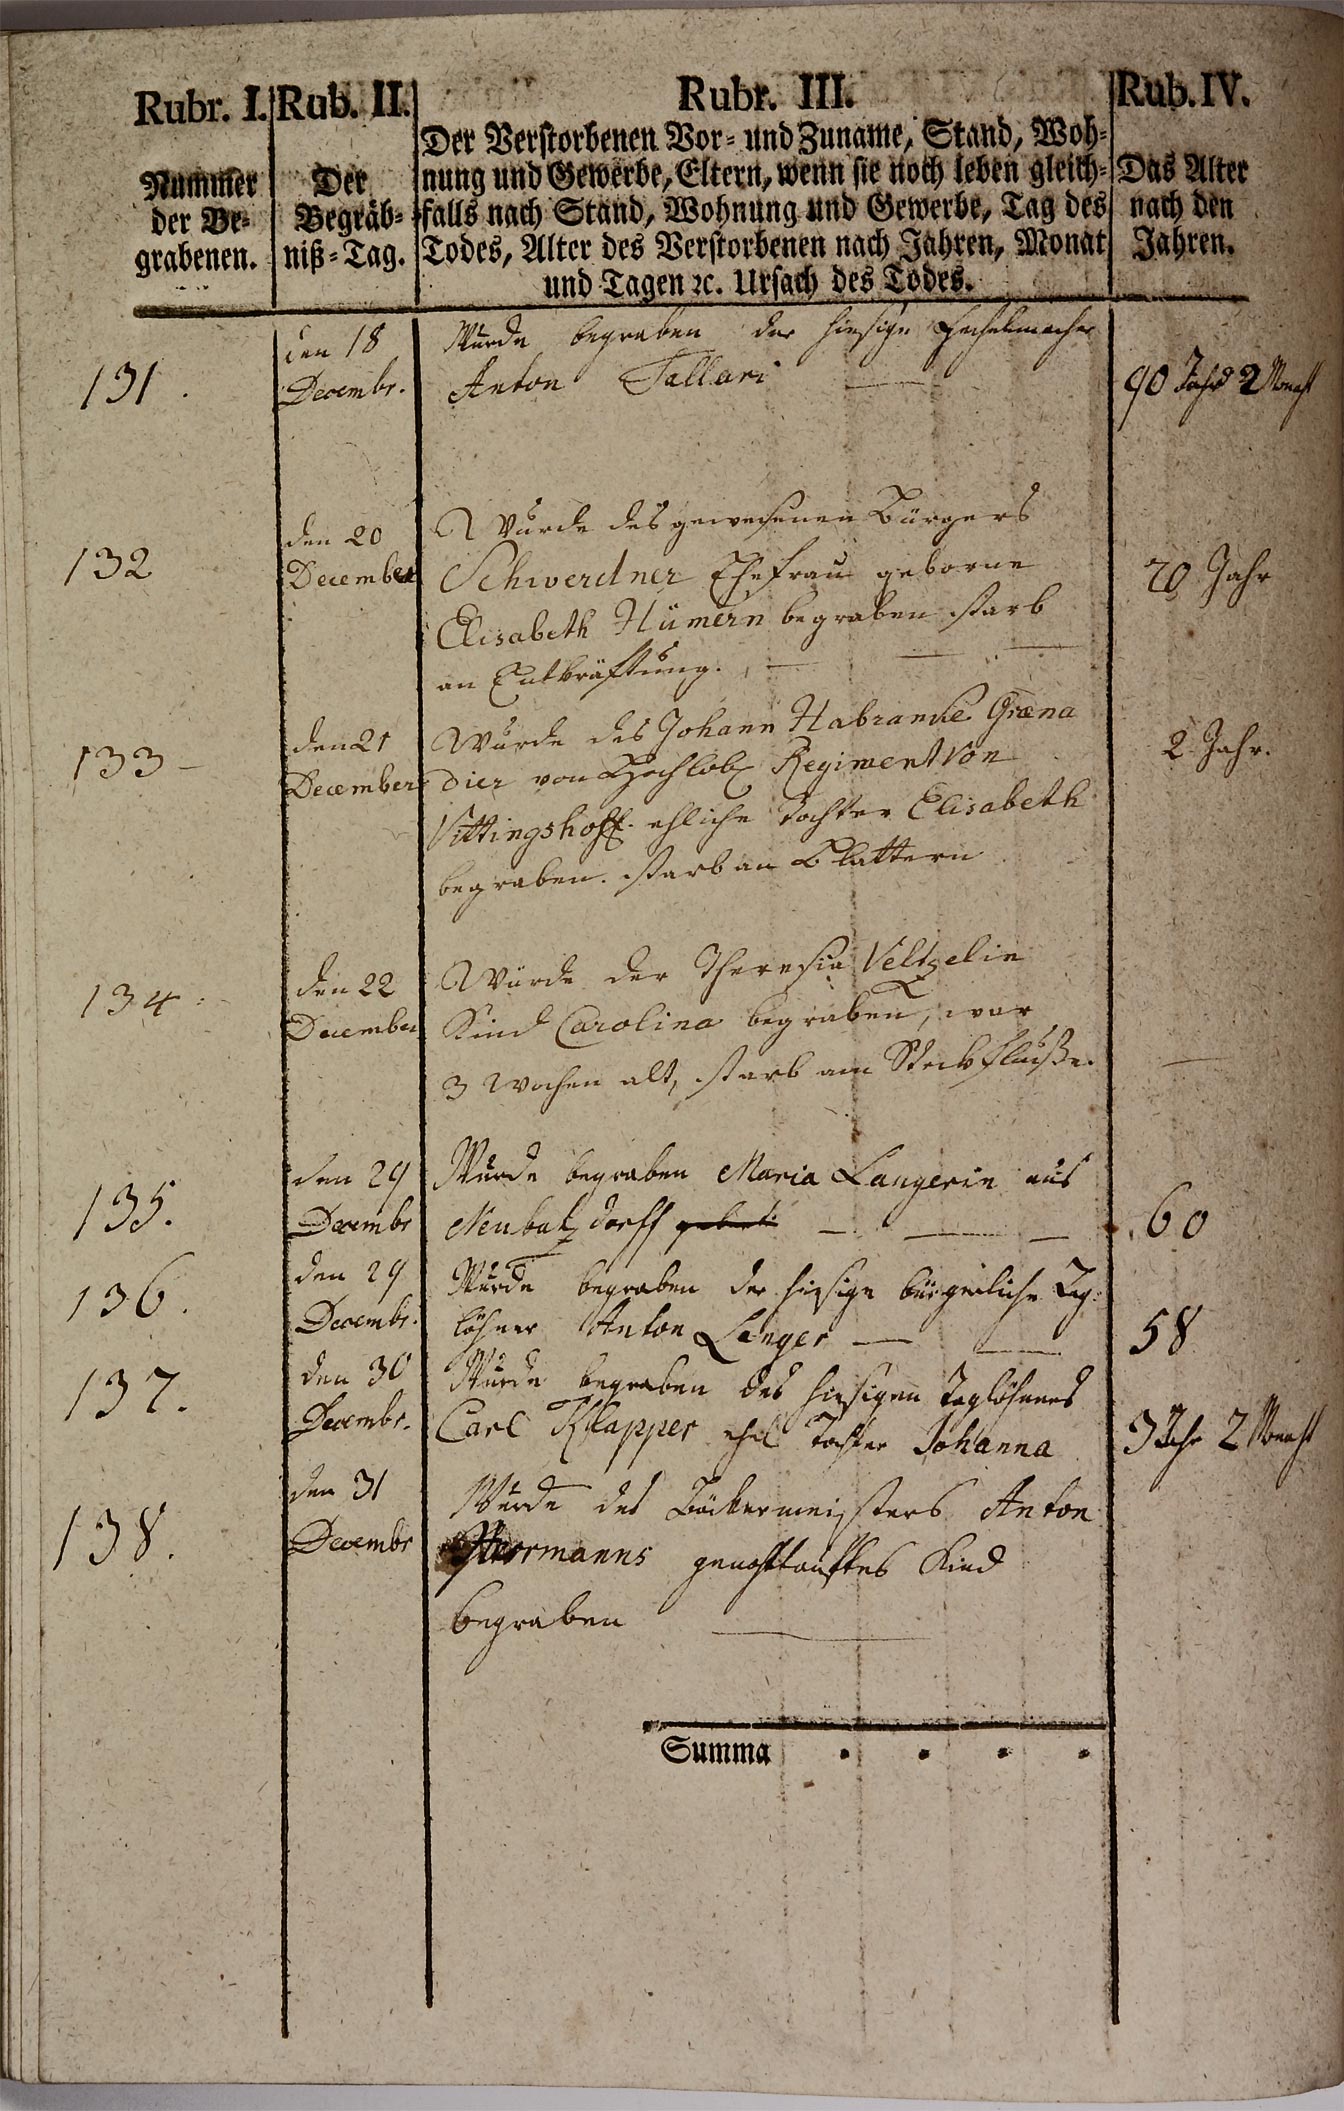 Rubr. I.
Nummer
der Be-
grabenen.
Rub. II.
Der
Begräb-
niß-Tag.
Rubr. III.
Der Verstorbenen Vor- und Zuname, Stand, Woh-
nung und Gewerbe, Eltern, wenn sie noch leben gleich-
falls nach Stand, Wohnung und Gewerbe, Tag des
Todes, Alter des Verstorbenen nach Jahren, Monat
und Tagen ꝛc. Ursach des Todes.
Rub. IV.
Das Alter
nach den
Jahren.
131.
den 18
Decembr.
Wurde begraben der hiesige Hechelmacher
Anton Tallari
90 Jahr 2 Monath
132
den 20
December
Wurde des gewesenen Bürgers
Schwerdner Ehefrau geborne
Elisabeth Hümern begraben starb
an Entkräftung.
70 Jahr
133
den 21
December
Wurde des Johann Habranke Græna
dier von Hochlobl Regiment von
Vittingshoff. ehliche Tochter Elisabeth
begraben. starb an Blattern
2 Jahr.
134
den 22
December
Wurde der Theresia Veltzelin
Kind Carolina begraben, war
3 Wochen alt, starb am Steckfluße.
135.
den 29
Decembr
Wurde begraben Maria Langerin aus
Neubatzdorff
60
136.
den 29
Decembr.
Wurde begraben der hiesige bürgerliche Tag-
löhner Anton Langer
58
137.
den 30
Decembr.
Wurde begraben des hiesigen Taglöhners
Carl Klapper ehel Tochter Johanna
3 Jahr 2 Monath
138.
den 31
Decembr
Wurde des Bäckermeisters Anton
Herrmanns genothtauftes Kind
begraben
Summa . . . .